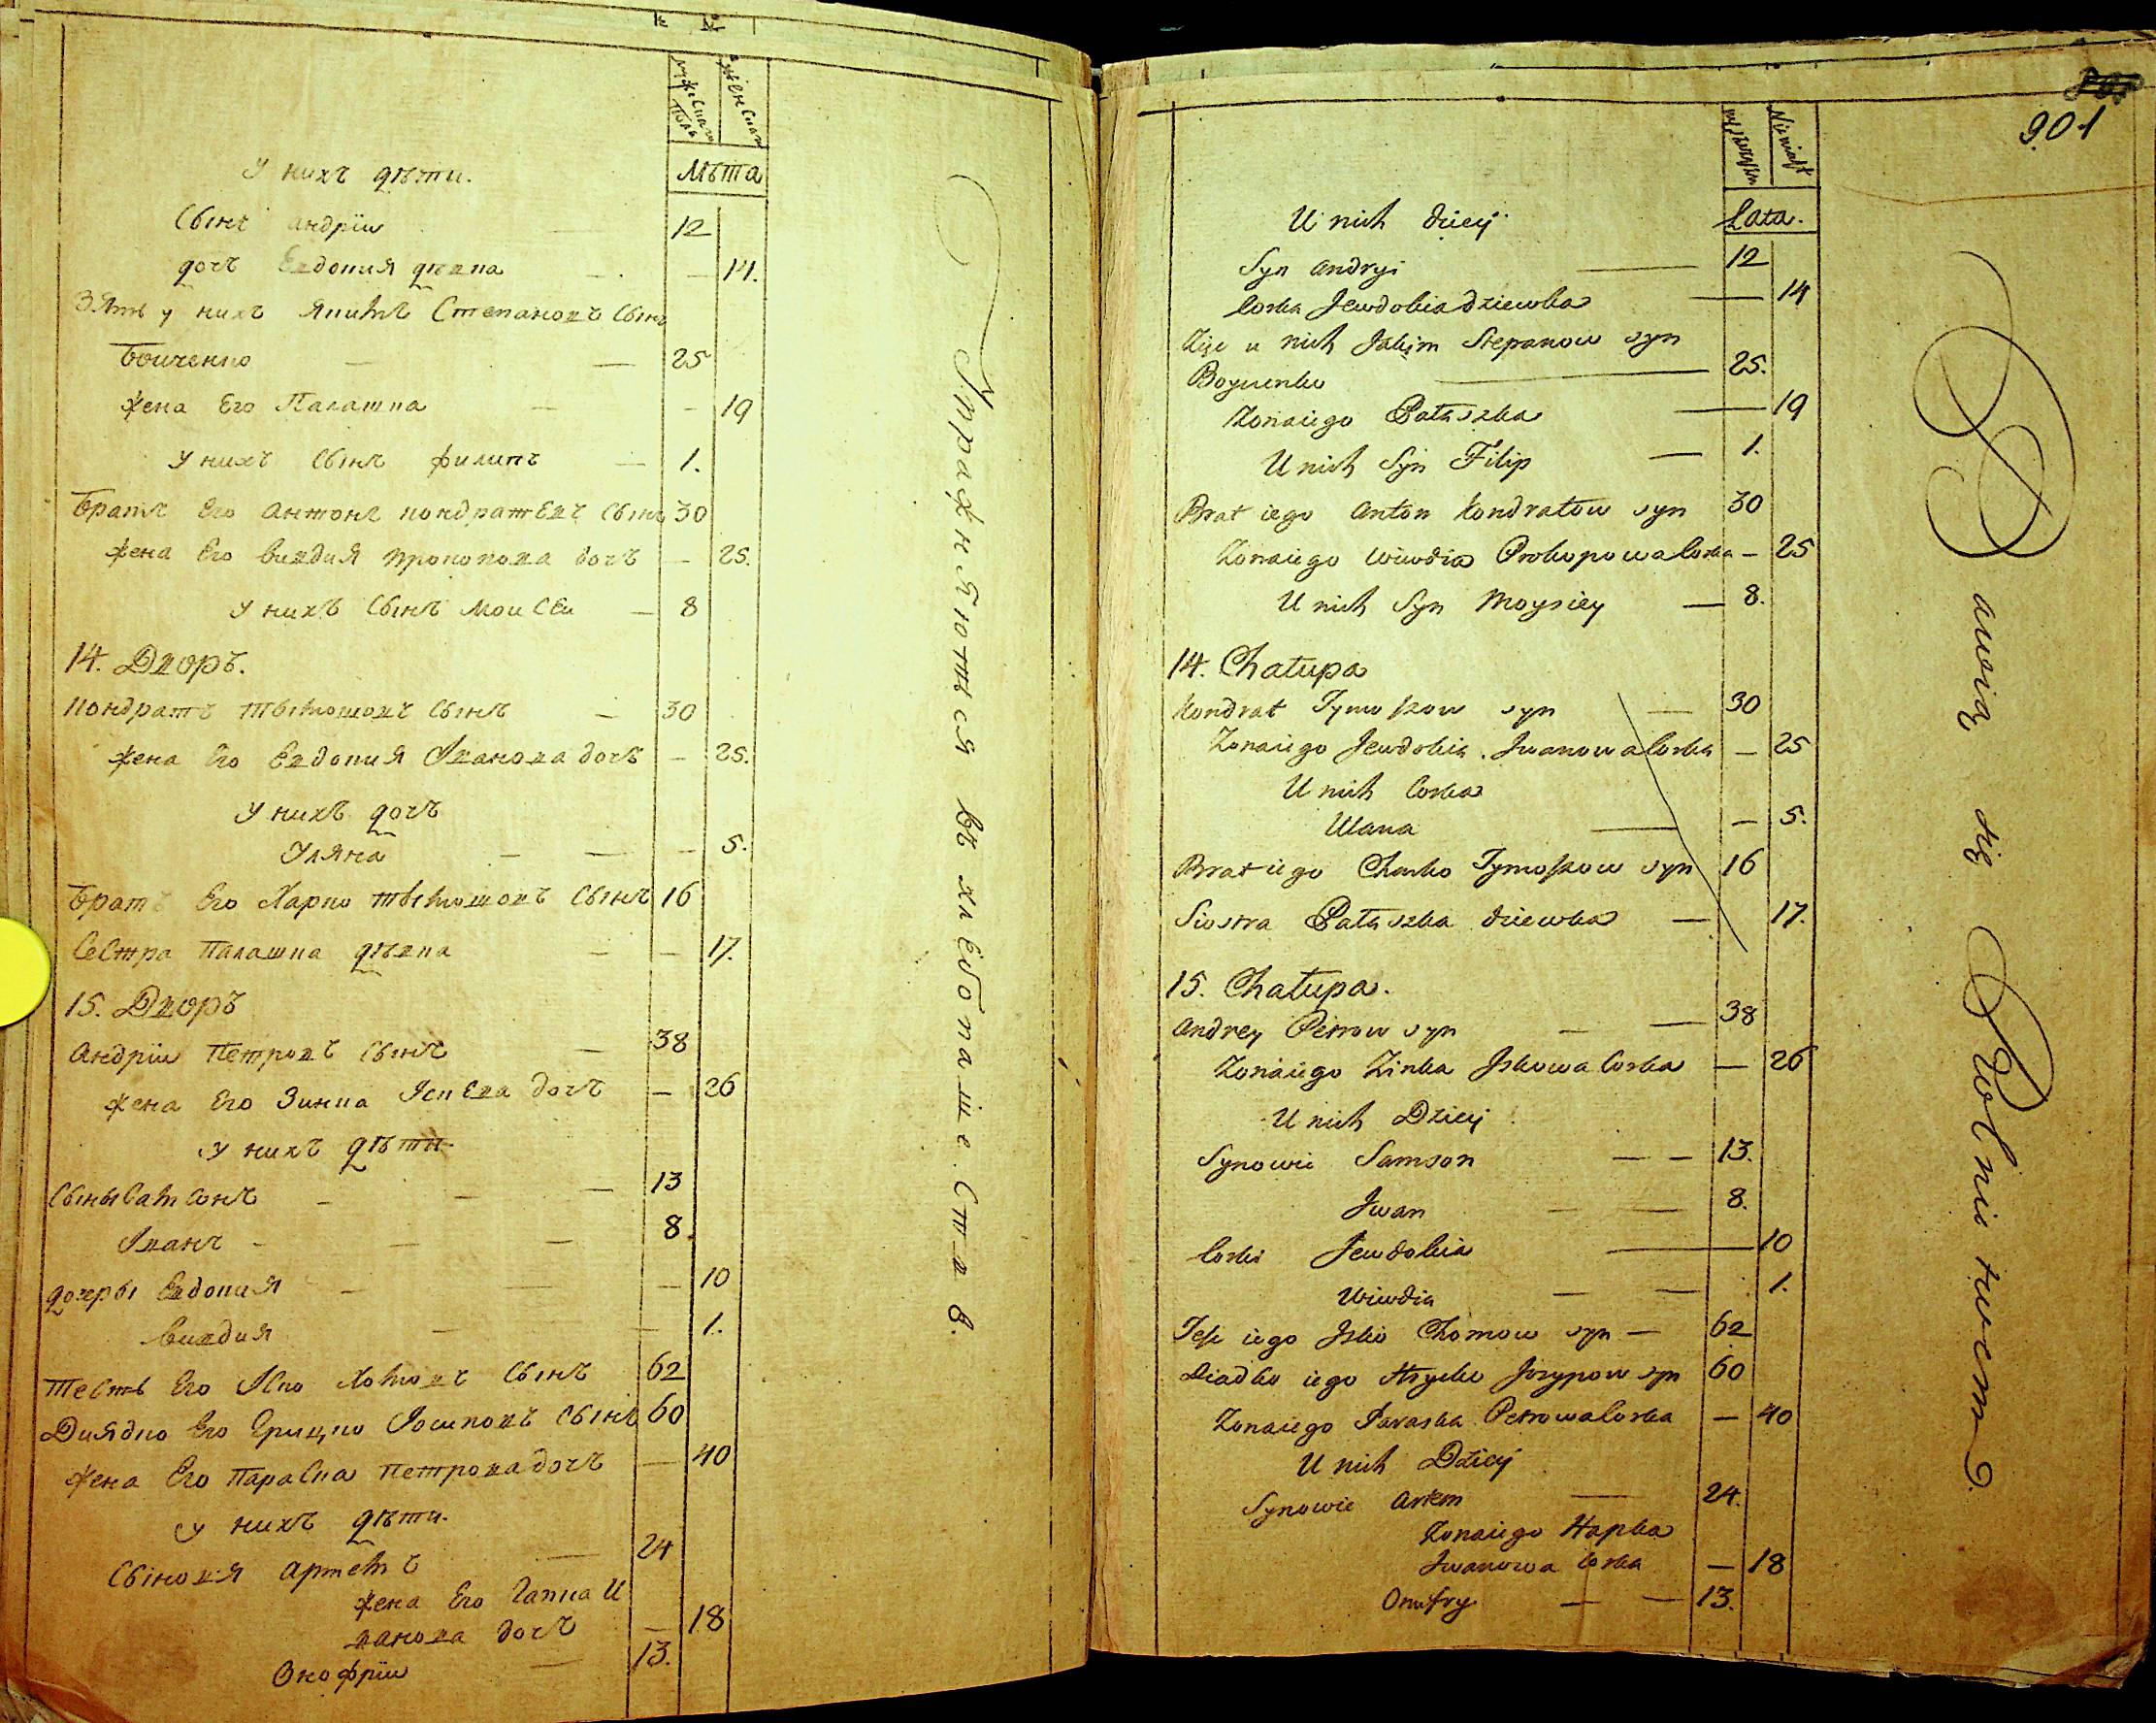 мужеска
полъ
женска
Лѣта
У нихъ дѣти.
Сынъ Андрїи 12
дочъ Евдокия дѣвка — 14.
Зять у нихъ Якимъ Степановъ Сынъ
Боиченко — — 25
жена Его Палашка — — 19
У нихъ Сынъ Филипъ — 1.
Братъ Его Антонъ Кондратевъ Сынъ 30
жена Его Вивдия Прокопова дочъ — 25.
У нихъ Сынъ Моисеи — 8
14. Дворъ.
Кондратъ Тымошовъ Сынъ — 30
жена Его Евдокия Иванова дочъ — 25.
У нихъ дочъ
Уляна — — — 5.
Братъ Его Харко Тымошовъ Сынъ 16
Сестра Палашка дѣвка — — 17.
15. Дворъ
Андрїи Петровъ Сынъ — 38
жена Его Зинка Іскева дочъ — 26
У нихъ дѣти
Сыны Самсонъ — — — 13
Иванъ — — — 8.
дочеры Евдокия — — — 10
Вивдия — — 1.
Тесть Его Иско Хомовъ Сынъ 62
Диядко Его Грицко Іосиповъ Сынъ 60
жена Его Параска Петрова дочъ — 40
У нихъ дѣти.
Сыновя Артемъ — 24
жена Его Гапка И
ванова дочъ — 18
Онофрїи — 13.
Упражняются въ хлебопашествѣ.
901
Lata.
U nich dzieci
Syn Andryi — 12
Corka Jewdokia dziewka — 14
Zięc u nich Jakim Stepanow syn
Boyczenko — 25.
Zona iego Pałaszka — 19
U nich Syn Filip — 1.
Brat iego Anton Kondratow syn 30
Zona iego Wiwdia Prokopowa Corka — 25
U nich Syn Moysiey — 8.
14. Chałupa
Kondrat Tymoszow syn — 30
Zona iego Jewdokia Iwanowa Corka — 25
U nich Corka
Ulana — — 5.
Brat iego Charko Tymoszow syn 16
Siostra Pałaszka dziewka — 17.
15. Chałupa.
Andrey Petrow syn — — 38
Zona iego Zinka Iskowa Corka — 26
U nich Dzieci
Synowie Samson — — 13.
Iwan — — 8.
Corki Jewdokia — 10
Wiwdia — — 1.
Teść iego Isko Chomow syn — 62
Diadko iego Hrycko Jozypow syn 60
Zona iego Paraska Petrowa Corka — 40
U nich Dzieci
Synowie Artem — 24.
Zona iego Hapka
Iwanowa Corka — 18
Onufry — — 13.
Bawią się Rolnictwem